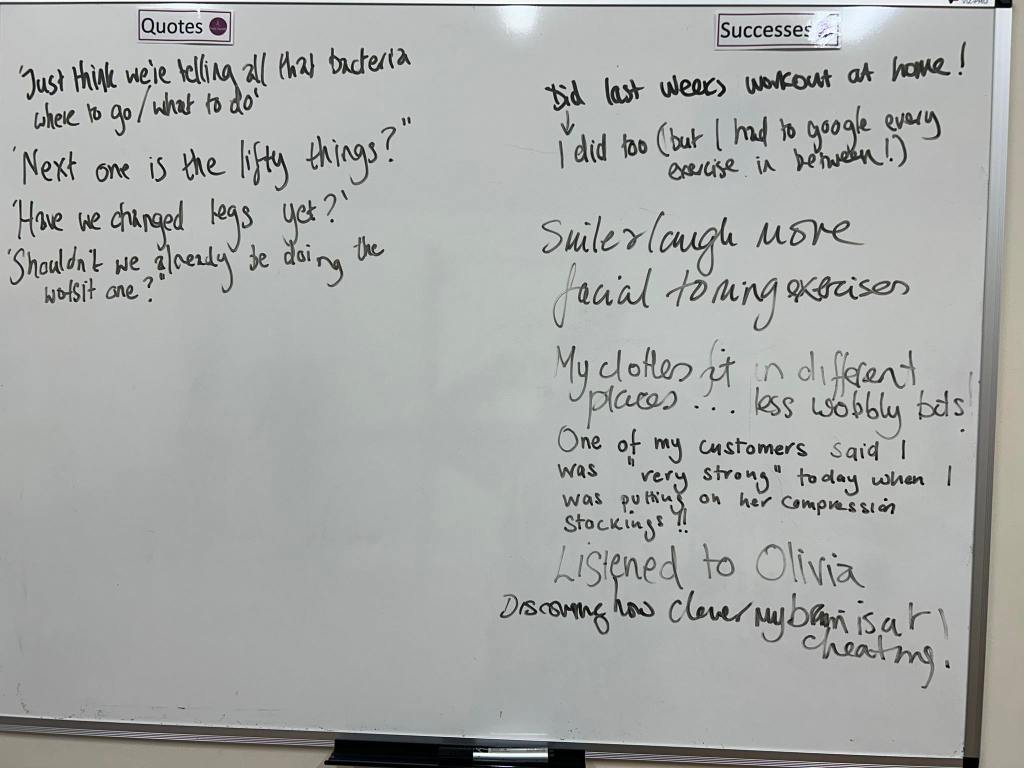 Quotes
'Just think we're telling all that bacteria
where to go/what to do'
'Next one is the lifty things?"
'Have we changed legs yet?'
'Shouldn't we already be doing the
wotsit one?"
Successes
Did last weeks workout at home!
↓
I did too (but I had to google every
exercise in between!)
Smile/laugh more
facial toning exercises
My clothes fit in different
places... less wobbly bits!
One of my customers said I
was "very strong" today when I
was putting on her compression
stockings!!
Listened to Olivia
Discovering how clever my brain is at
cheating.